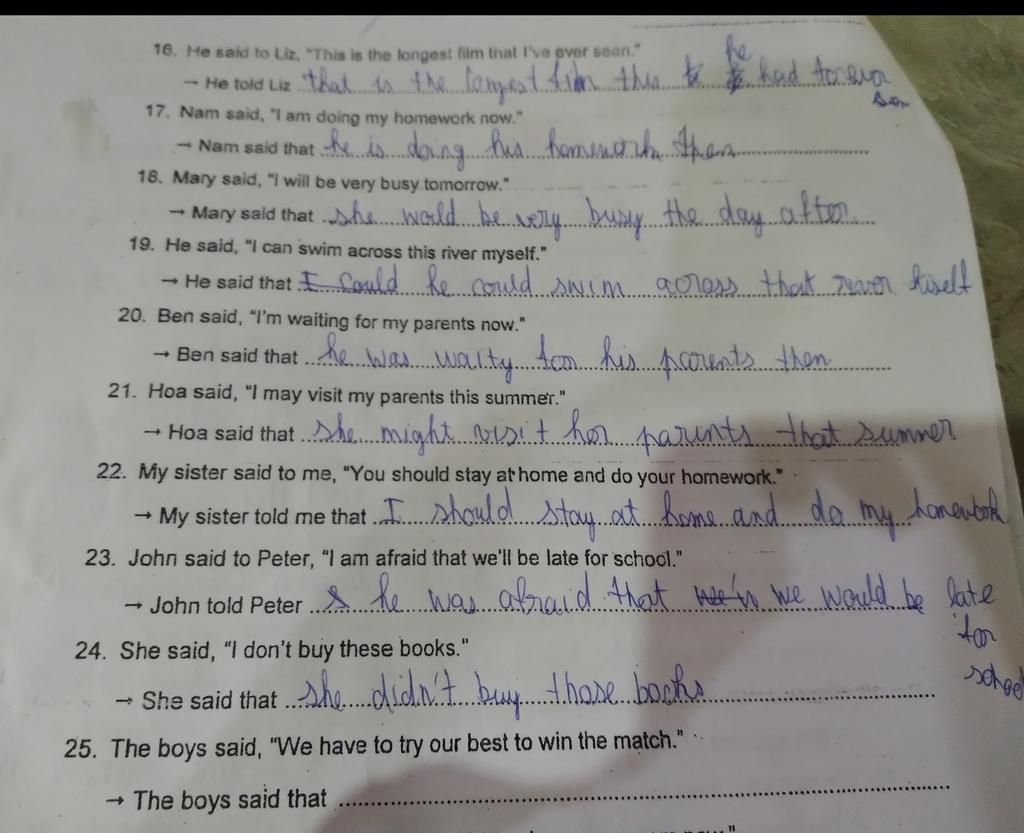 16. He said to Liz, "This is the longest film that I've ever seen."
he
→ He told Liz that is the longest film this had
17. Nam said, "I am doing my homework now."
→ Nam said that he is doing his homework then
18. Mary said, "I will be very busy tomorrow."
→ Mary said that she would be very busy the day after
19. He said, "I can swim across this river myself."
→ He said that I could he could swim across that river
20. Ben said, "I'm waiting for my parents now."
→ Ben said that he was waity for his parents then
21. Hoa said, "I may visit my parents this summer."
→ Hoa said that she might visit her parents that summer
22. My sister said to me, "You should stay at home and do your homework."
→ My sister told me that I should stay at home and do my homework
23. John said to Peter, "I am afraid that we'll be late for school."
→ John told Peter he was afraid that we would be late
for
school
24. She said, "I don't buy these books."
→ She said that she didn't buy those books
25. The boys said, "We have to try our best to win the match."
→ The boys said that